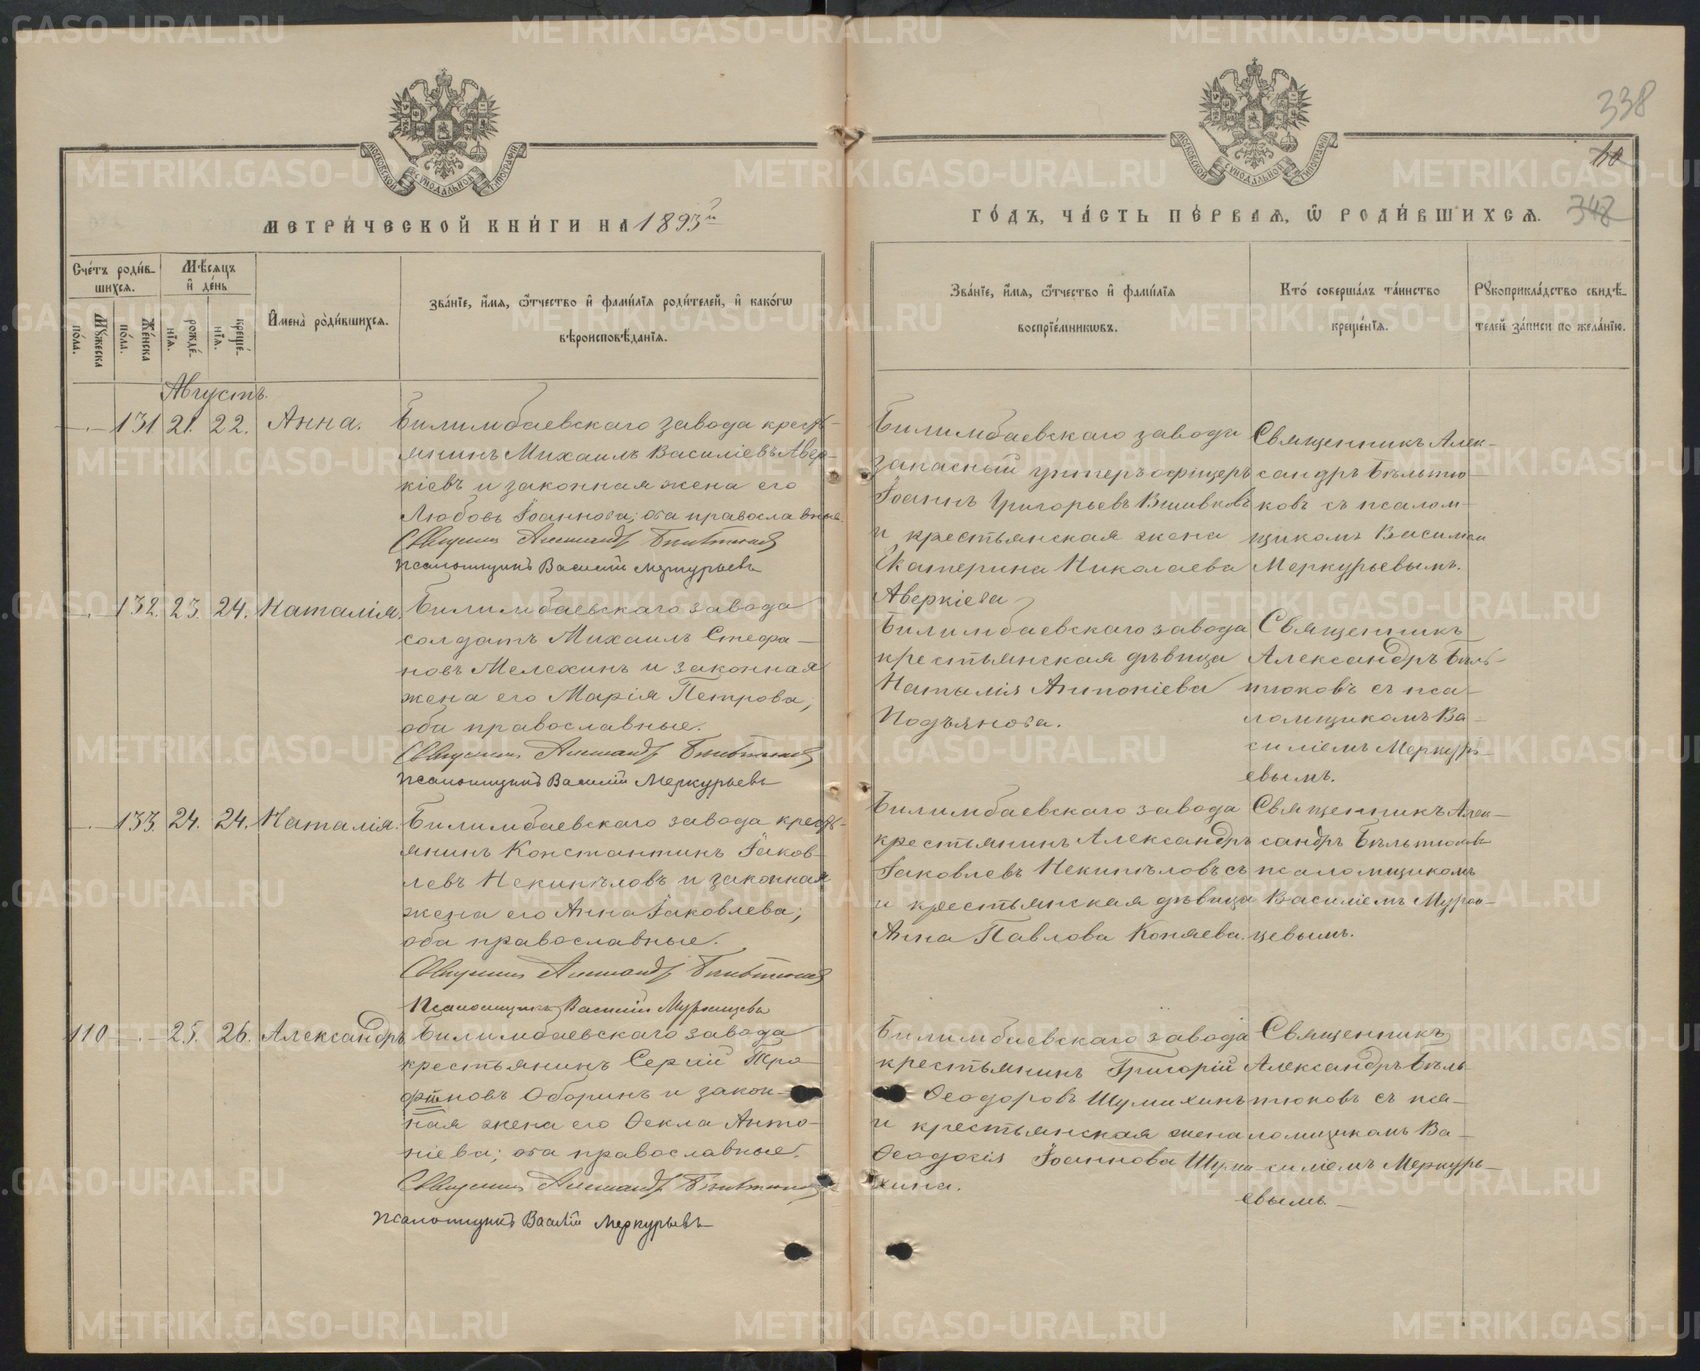 338
10
348
МЕТРИ́ЧЕСКОЙ КНИ́ГИ НА 1893й
ГО́ДЪ, ЧА́СТЬ ПЕ́РВАѦ, Ѿ РОДИ́ВШИХСѦ.
Сче́тъ роди́в-
шихсѧ.
Мꙋ́жеска
по́ла.
Же́нска
по́ла.
Мѣ́сѧцъ
и҆ де́нь
рожде́-
нїѧ.
креще́-
нїѧ.
И҆мена̀ роди́вшихсѧ.
Зва́нїе, и҆́мѧ, ѻ҆́тчество и҆ фами́лїѧ роди́телей, и҆ како́гѡ
вѣроисповѣ́данїѧ.
Зва́нїе, и҆́мѧ, ѻ҆́тчество и҆ фами́лїѧ
воспрїе́мникѡвъ.
Кто̀ соверша́лъ та́инство
креще́нїѧ.
Рꙋкоприкла́дство свидѣ́-
телей за́писи по жела́нїю.
Августъ.
131 21. 22. Анна.
Билимбаевскаго завода кресть-
янинъ Михаилъ Василіевъ Авер-
кіевъ и законная жена его
Любовь Іоаннова; оба православные
Священник Александр Бельтюков
Псаломщикъ Василій Меркурьевъ
Билимбаевскаго завода
запасный унтеръ офицеръ
Іоаннъ Григорьевъ Вшивковъ
и крестьянская жена
Екатерина Николаева
Аверкіева
Священникъ Алек-
сандръ Бѣльтю-
ковъ съ псалом-
щикомъ Василіем
Меркурьевымъ.
132. 23. 24. Наталія.
Билимбаевскаго завода
солдатъ Михаилъ Стефа-
новъ Мелехинъ и законная
жена его Марія Петрова;
оба православные.
Священник Александр Бельтюков
Псаломщикъ Василій Меркурьевъ
Билимбаевскаго завода
крестьянская дѣвица
Наталія Антоніева
Подъянова.
Священникъ
Александръ Бѣль-
тюковъ съ пса-
ломщикомъ Ва-
силіемъ Меркурь-
евымъ.
133. 24. 24. Наталія.
Билимбаевскаго завода кресть-
янинъ Константинъ Іаков-
левъ Некипѣловъ и законная
жена его Анна Іаковлева;
оба православные.
Священник Александр Бельтюков
Псаломщикъ Василій Мурзинцевъ
Билимбаевскаго завода
крестьянинъ Александръ
Іаковлевъ Некипѣловъ
и крестьянская дѣвица
Анна Павлова Коняева.
Священникъ Алек-
сандръ Бѣльтюковъ
съ псаломщикомъ
Василіемъ
цевымъ.
110 25. 26. Александръ
Билимбаевскаго завода
крестьянинъ Сергій Тро-
фимовъ Оборинъ и закон-
ная жена его Ѳекла Анто-
ніева; оба православные.
Священник Александр Бельтюков
Псаломщикъ Василій Меркурьевъ
Билимбаевскаго завода
крестьянинъ Григорій
Ѳеодоровъ Шумихинъ
и крестьянская жена
Ѳеодосія Іоаннова Шуми-
хина.
Священникъ
Александръ Бѣль-
тюковъ съ пса-
ломщикомъ Ва-
силіемъ Меркурь-
евымъ.
METRIKI.GASO-URAL.RU